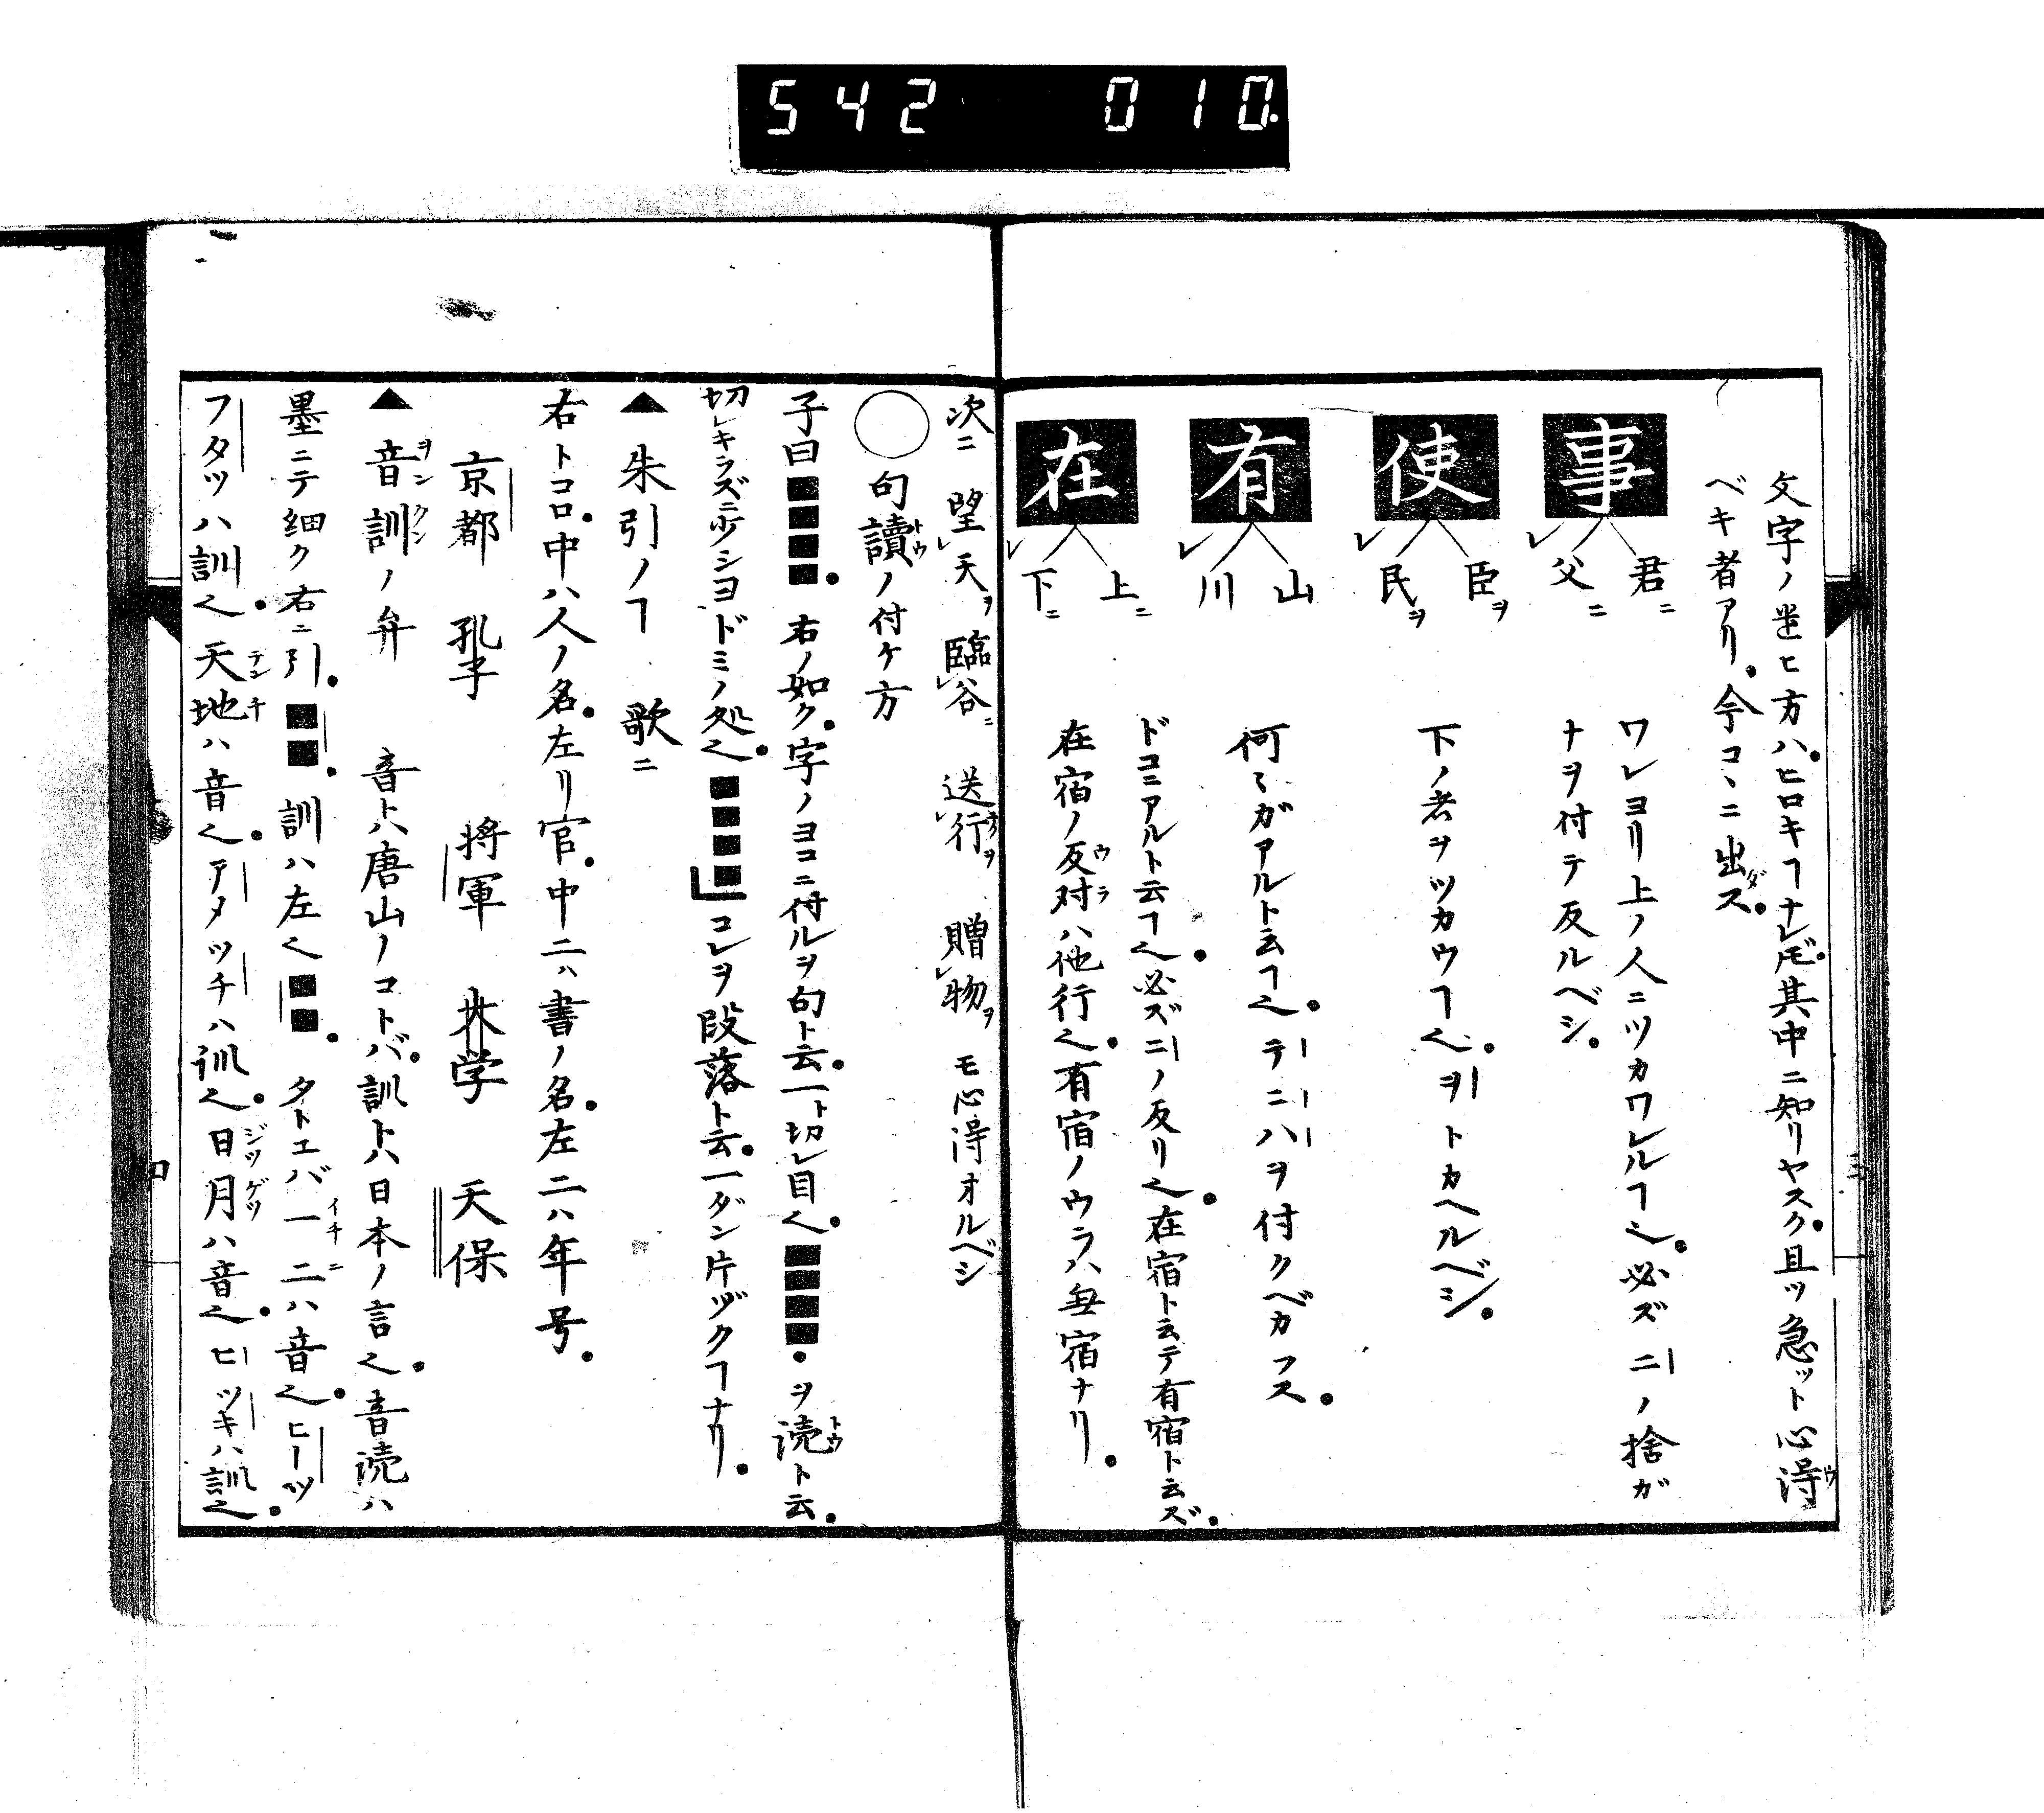 542 010.
文字ノ遣ヒ方ハ.ヒロキヿナレ𪜈.其中ニ知リヤスク.且ツ急ット心得
ベキ者アリ.今コヽニ出ス.
事
君ニ
父ニ
ワレヨリ上ノ人ニツカワルヽヿ也.必ズニノ捨ガ
ナヲ付テ反ルベシ.
使
臣ヲ
民ヲ
下ノ者ヲツカウヿ也.ヲトカヘルベシ.
有
山
川
何〻ガアルト云ヿ也.テニハヲ付クベカラス.
在
上ニ
下ニ
ドコニアルト云ヿ也.必ズニノ反リ也.在宿ト云テ有宿ト云ズ.
在宿ノ反対ハ他行也.有宿ノウラハ無宿ナリ.
三
次ニ 望レ天ヲ 臨レ谷ニ 送レ行ヲ 贈レ物ヲ モ心得オルベシ
○ 句讀ノ付ケ方
子曰■■■■.右ノ如ク.字ノヨコニ付ルヲ句ト云.一ト切レ目也.■■■■.ヲ読ト云.
切レキラズニ少シヨドミノ処也.■■■■」コレヲ段落ト云.一ダン片ヅクヿナリ.
▲ 朱引ノヿ 歌ニ
右トコロ.中ハ人ノ名.左リ官.中二ハ書ノ名.左二ハ年号.
京都 孔子 将軍 大学 天保
▲ 音訓ノ弁 音トハ唐山ノコトバ.訓トハ日本ノ言也.音読ハ
墨ニテ細ク右ニ引.■■.訓ハ左也■■.タトエバ一二ハ音也.ヒーツ
フタツハ訓也.天地ハ音也.アメツチハ訓也.日月ハ音也.ヒツキハ訓也.
四